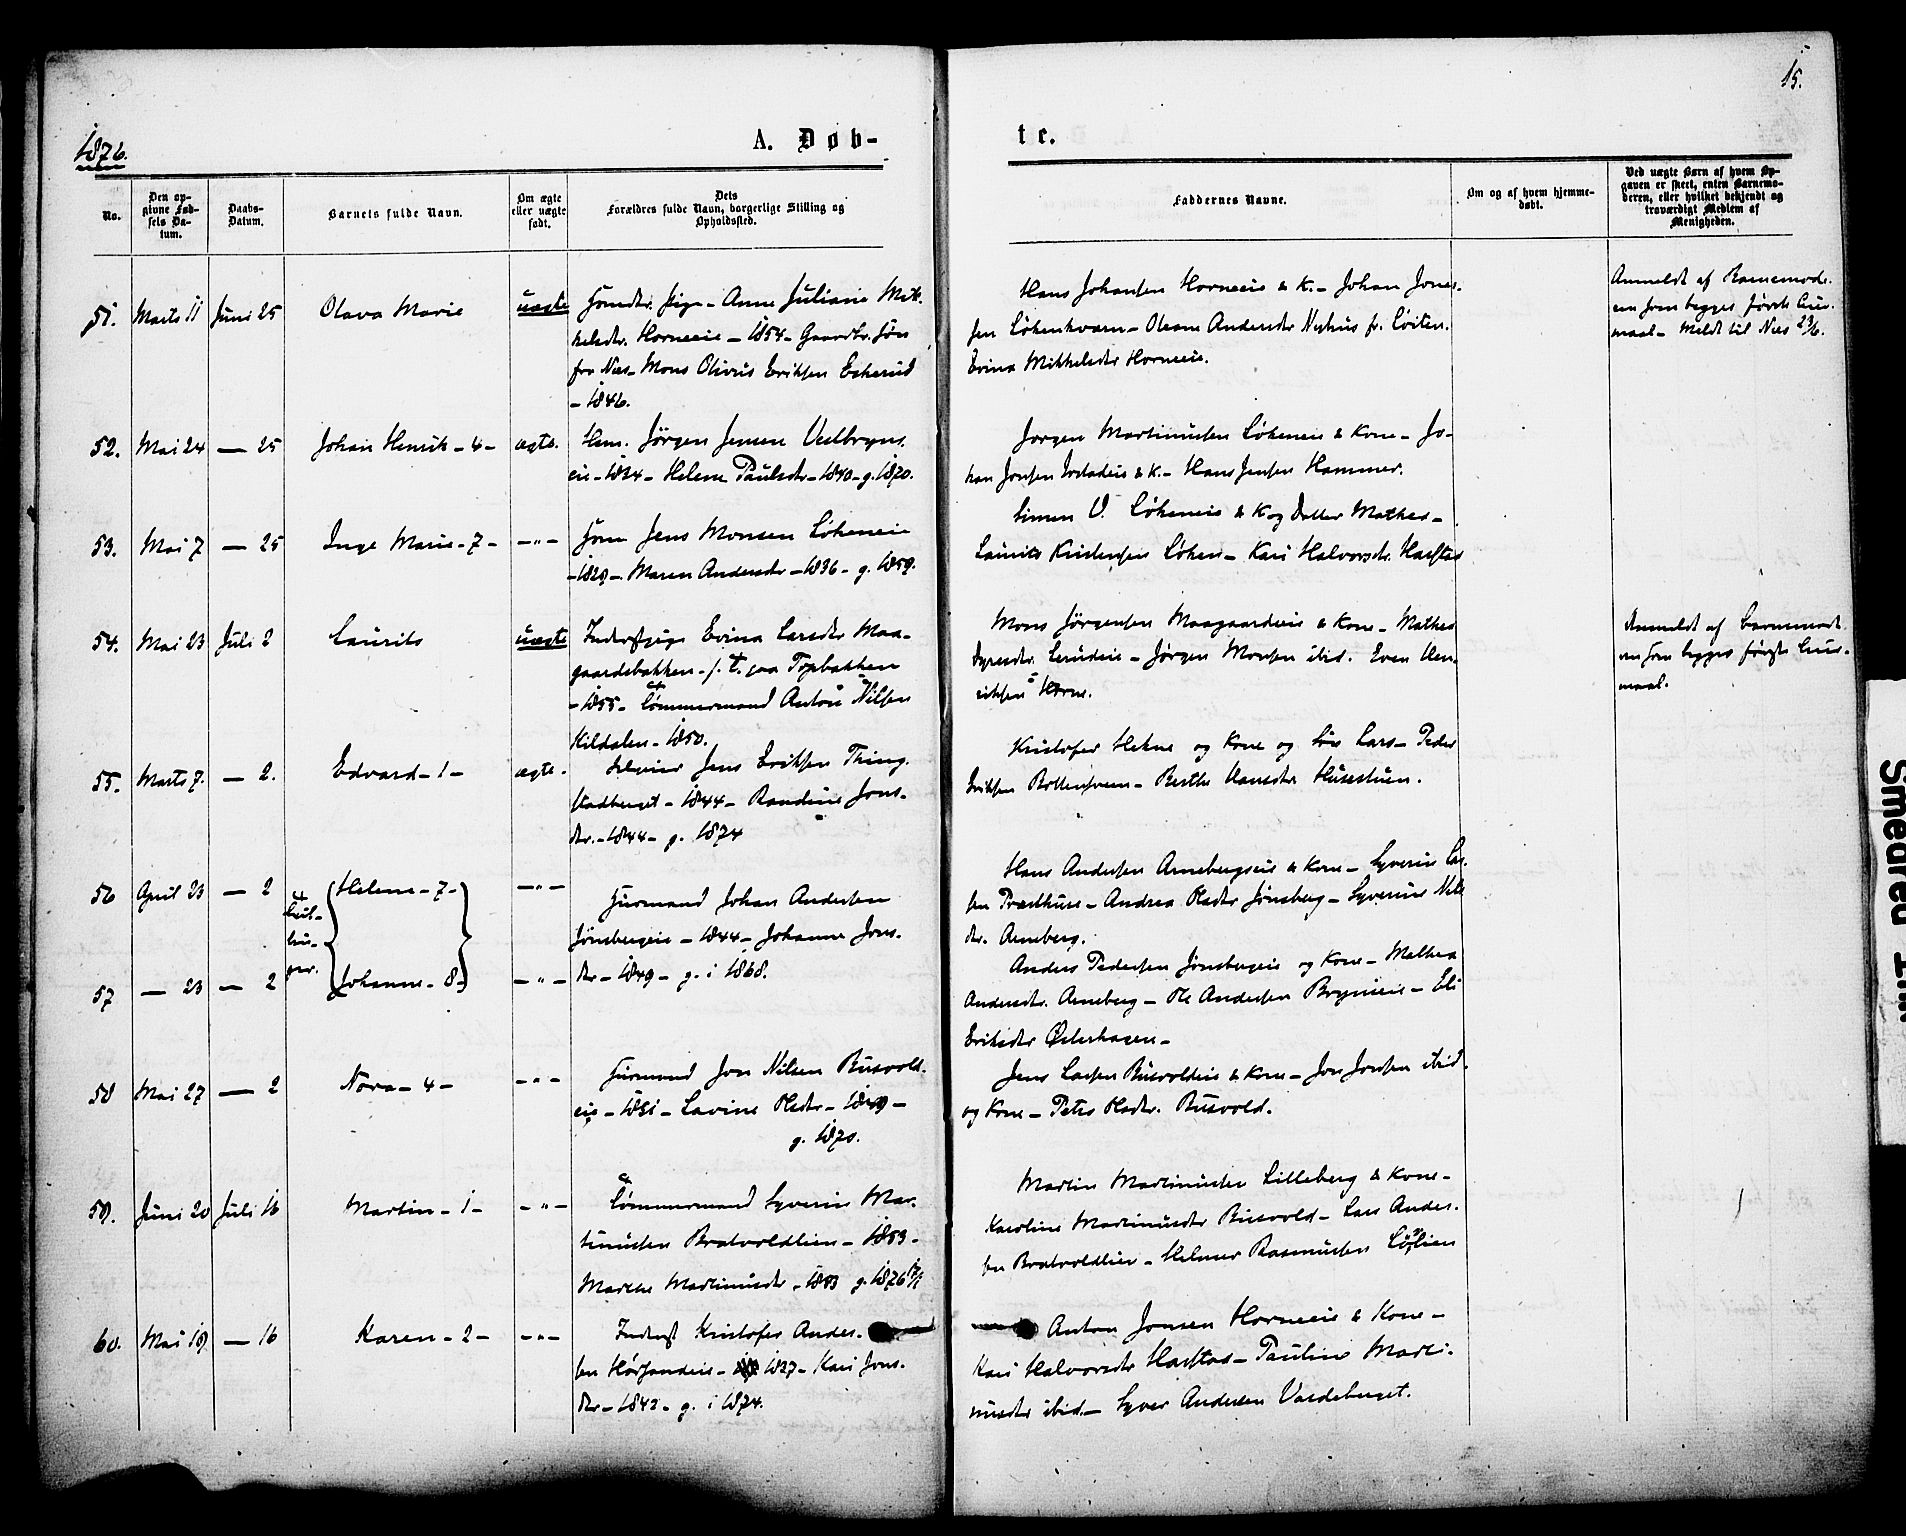 15.
1876.
A. Døb-
te.
No.
Den op-
givne Fød-
sels Da-
tum.
Daabs-
Datum.
Barnets fulde Navn.
Om ægte
eller uægte
født.
Dets
Forældres fulde Navn, borgerlige Stilling og
Opholdssted.
Faddernes Navne.
Om og af hvem hjemme-
døbt.
Ved uægte Børn af hvem Op-
gaven er skeet, enten Barnemo-
deren, eller hvilket bekjendt og
troværdigt Medlem af
Menigheden.
51. Marts 11 Juni 25 Olava Marie uægte Pige - Anne Juliane Mik-
kelsdtr. Horneeie - 1854 - Gaardbr. Søn
fra Næs - Mons Olivius Eriksen Eskerud
- 1846.
Hans Johansen Horneeie & K. - Johan Jones-
sen Løkenkværn - Oleane Andersdtr Nyhus fr. Løiten.
Evina Mikkelsdtr Horneeie.
Anmeldt af Barnemod-
en som begges første Leier-
maal - Meldt til Næs 23/6.
52. Mai 24 — 25 Johan Henrik - 4 - ægte. Hsm. Jørgen Jensen Veslbryns-
eie - 1824 - Helene Paulsdtr - 1840 - g. 1870.
Jørgen Martinusen Løkeneie & Kone - Jo-
han Jonsen & K. - Hans Jensen Hammer.
53. Mai 7 — 25 Inge Marie - 7 - -"- Jens Monsen Løkeneie
- 1829 - Maren Andersdtr - 1836 - g. 1859.
Simen O. Løkeneie & K og Datter Mathea -
Laurits Kristensen Løken - Kari Halvorsdtr. Harstad
54. Mai 23 Juli 2 Laurits uægte Inderstpige Evina Larsdtr Maa-
gaardsbakken - f. t. paa Topbakken
- 1855 - Tømmermand Anton Nilsen
Kildalen - 1850.
Mons Jørgensen Maagaardeie & Kone - Mathea
Syversdtr. - Jørgen Monsen ibid. Even Hen-
riksen Horne.
Anmeldt af Barnemod-
en som begges første Leier-
maal.
55. Marts 7. — 2. Edvard - 1 - ægte. Jens Eriksen Thing-
stadberget - 1844 - Randine Jons-
dtr. - 1844 - g. 1874
Kristofer Hekne og Kone og Søn Lars - Peder
Eriksen - Berthe Hansdtr Husestuen.
56 April 23 — 2 Tvil-
lin-
ger. Helene - 7 - -"-
Husmand Johan Andersen
Jønsbergeie - 1844 - Johanne Jons-
dtr - 1849 - g. i 1868.
Hans Andersen Arnebergseie & Kone - Syverin Lar-
sen Præsthuse - Andrea Olsdtr Jønsberg - Syverine Nils-
dtr. Arneberg.
57 — 23 — 2 Johanne - 8 - -"-
Anders Pedersen Jønsbergeie og Kone - Mathea
Andersdtr. Arneberg - Ole Andersen Bryneeie - Eli
Eriksdtr Østerhagen -
58 Mai 27 — 2 Nora - 4 - -"- Husmand Jon Nilsen Busvold-
eie - 1851 - Lavine Olsdtr - 1849 -
g. 1870.
Jens Larsen Busvoldeie & Kone - Jon Jonsen ibid.
og Kone - Petra Olsdtr. Busvold.
59. Juni 20 Juli 16 Martin - 1 - -"- Tømmermand Syverin Mar-
tinusen Bratvoldlien - 1853 -
Marthe Martinusdtr - 1853 g. 1876
Martin Martinusen Lilleberg & Kone -
Karoline Martinusdtr Busvold - Lars Ander-
sen Bratvoldlien - Helmer Rasmusen
60. Mai 19 — 16 Karen - 2 - -"- Inderst Kristofer Ander-
sen Hørsandeie - 1827 - Kari Jons-
dtr - 1842 - g. i 1874.
Anton Jonsen Horneeie & Kone -
Kari Halvorsdtr Harstad - Pauline Marti-
nusdtr ibid - Syver Andersen Vardeberget.
Smeared Ink